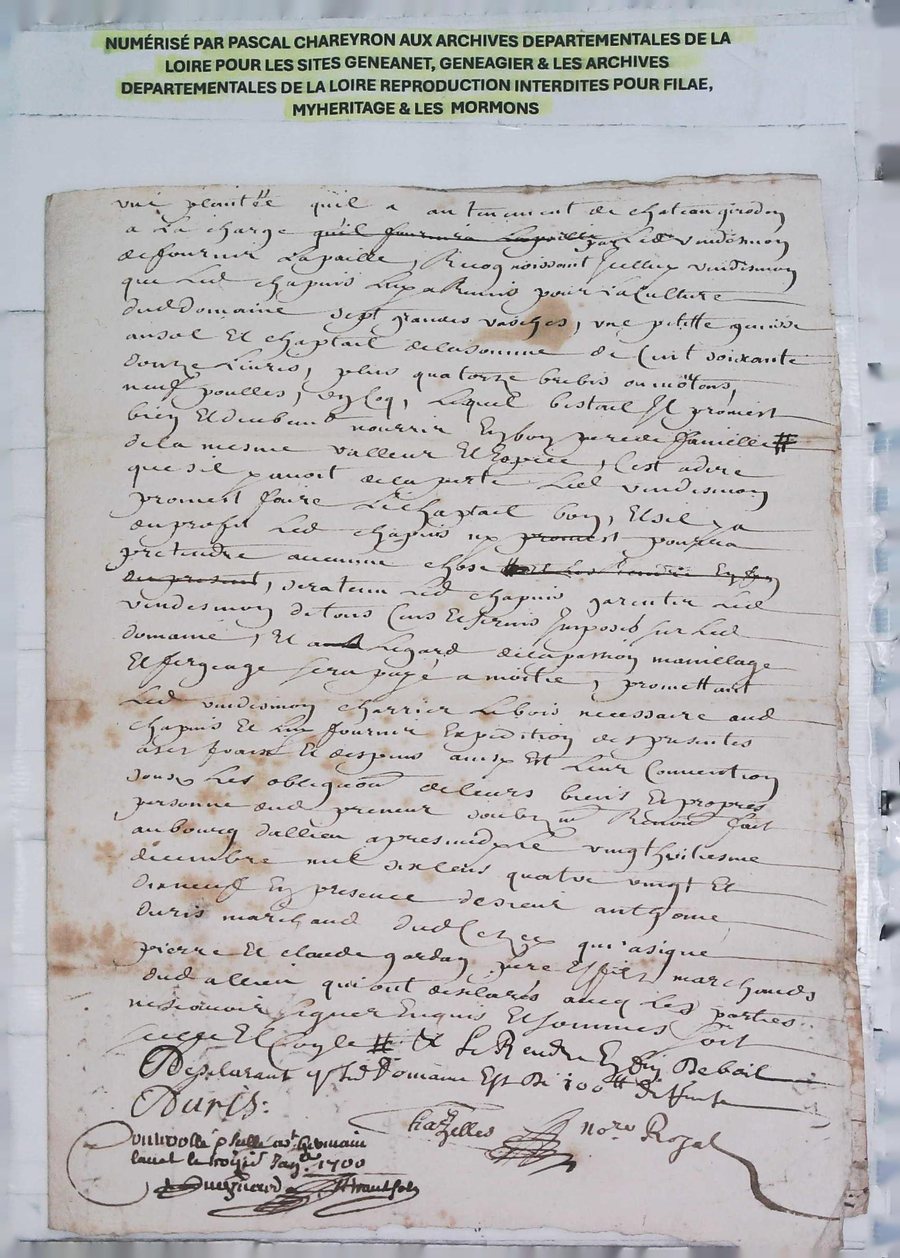 NUMÉRISÉ PAR PASCAL CHAREYRON AUX ARCHIVES DEPARTEMENTALES DE LA
LOIRE POUR LES SITES GENEANET, GENEAGIER & LES ARCHIVES
DEPARTEMENTALES DE LA LOIRE REPRODUCTION INTERDITES POUR FILAE,
MYHERITAGE & LES MORMONS
une plantée quil a au tenement de chateau girodon
a la charge quil fournira lapaille par led vindesmon
de fournir lapaille, Recognoissant Icelluy vindesmon
que led chapuis luy a Remis pour la Culture
dud Domaine sept grandes vasches, une petitte genisse
en sol Et chaptail de la somme de Cent soixante
douze Livres, plus quatorze brebis ou moutons,
neuf poulles, un Coq, lequel bestail Il promest
bien Et deubem nourrir En bon pere de famille #
de la mesme valleur Et Espece, Cest a dire
que sil y avoit de la perte Led vindesmon
promest faire Le chaptail bon, Et sil y a
du profit Led chapuis ny promest pourra
pretendre aucune chose
du present, sera tenu Led chapuis garentir Led
vindesmon de tous Cens Et servis Imposés sur Led
domaine, Et a Legard de la passon
Et fergeage sera payé a moitié, promettant
Led vindesmon charrier Le bois necessaire aud
chapuis Et luy fournir Expedition des presentes
a ses fraix Et despens ainsy Est Leur Convention
soubz Les obligaons de leurs biens Et propres
personne dud preneur soubzm Renons fait
au bourg dallieu apres midy Le vingthuitiesme
decembre mil six Cens quatre vingt Et
dixneuf En presence de sieur anthome
Duris marchand dud qui a signé
pierre Et claude gardon pere Et fils marchands
dud allieu qui ont desclarés avecq Les parties
ne scavoir signer Enquis Et sommes soit
scellé Et Conlle # & Le Rendre En fin De bail
Desclarant q led Domaine Est De 100 tt
Duris:
Chazelles nore Royal
Controllé & scellé a St Germain
laval le Janer 1700